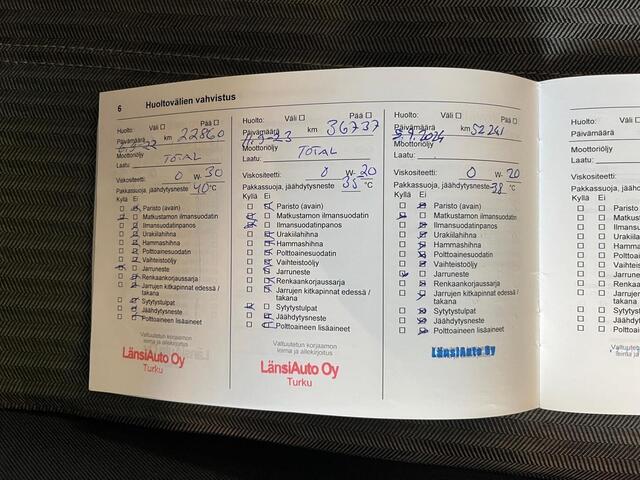 6 Huoltovälien vahvistus
Huolto: Väli ☐ Pää ☐
Päivämäärä km 22860
Moottoriöljy
Laatu: TOTAL
Viskositeetti: 0 W- 30
Pakkassuoja, jäähdytysneste 40 °C
Kyllä Ei
Paristo (avain)
Matkustamon ilmansuodatin
Ilmansuodatinpanos
Urakiilahihna
Hammashihna
Polttoainesuodatin
Vaihteistoöljy
Jarruneste
Renkaankorjaussarja
Jarrujen kitkapinnat edessä /
takana
Sytytystulpat
Jäähdytysneste
Polttoaineen lisäaineet
Valtuutetun korjaamon
leima ja allekirjoitus
LänsiAuto Oy
Turku
Huolto: Väli ☐ Pää ☐
Päivämäärä km 36737
Moottoriöljy
Laatu: TOTAL
Viskositeetti: 0 W- 20
Pakkassuoja, jäähdytysneste 35 °C
Kyllä Ei
Paristo (avain)
Matkustamon ilmansuodatin
Ilmansuodatinpanos
Urakiilahihna
Hammashihna
Polttoainesuodatin
Vaihteistoöljy
Jarruneste
Renkaankorjaussarja
Jarrujen kitkapinnat edessä /
takana
Sytytystulpat
Jäähdytysneste
Polttoaineen lisäaineet
Valtuutetun korjaamon
leima ja allekirjoitus
LänsiAuto Oy
Turku
Huolto: Väli ☐ Pää ☐
Päivämäärä km 52241
Moottoriöljy
Laatu:
Viskositeetti: 0 W- 20
Pakkassuoja, jäähdytysneste 38 °C
Kyllä Ei
Paristo (avain)
Matkustamon ilmansuodatin
Ilmansuodatinpanos
Urakiilahihna
Hammashihna
Polttoainesuodatin
Vaihteistoöljy
Jarruneste
Renkaankorjaussarja
Jarrujen kitkapinnat edessä /
takana
Sytytystulpat
Jäähdytysneste
Polttoaineen lisäaineet
LänsiAuto Oy
Huolto:
Päivämäärä
Moottoriöljy
Laatu:
Viskositeetti:
Pakkassuoja, jää
Kyllä Ei
Paristo
Matkus
Ilmans
Urakiil
Hamm
Poltto
Vaihte
Jarrun
Renka
Jarruj
takana
Sytyty
Jäähd
Poltto